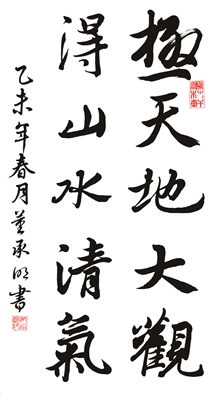 極天地大觀
得山水清氣
乙未年春月董承明書